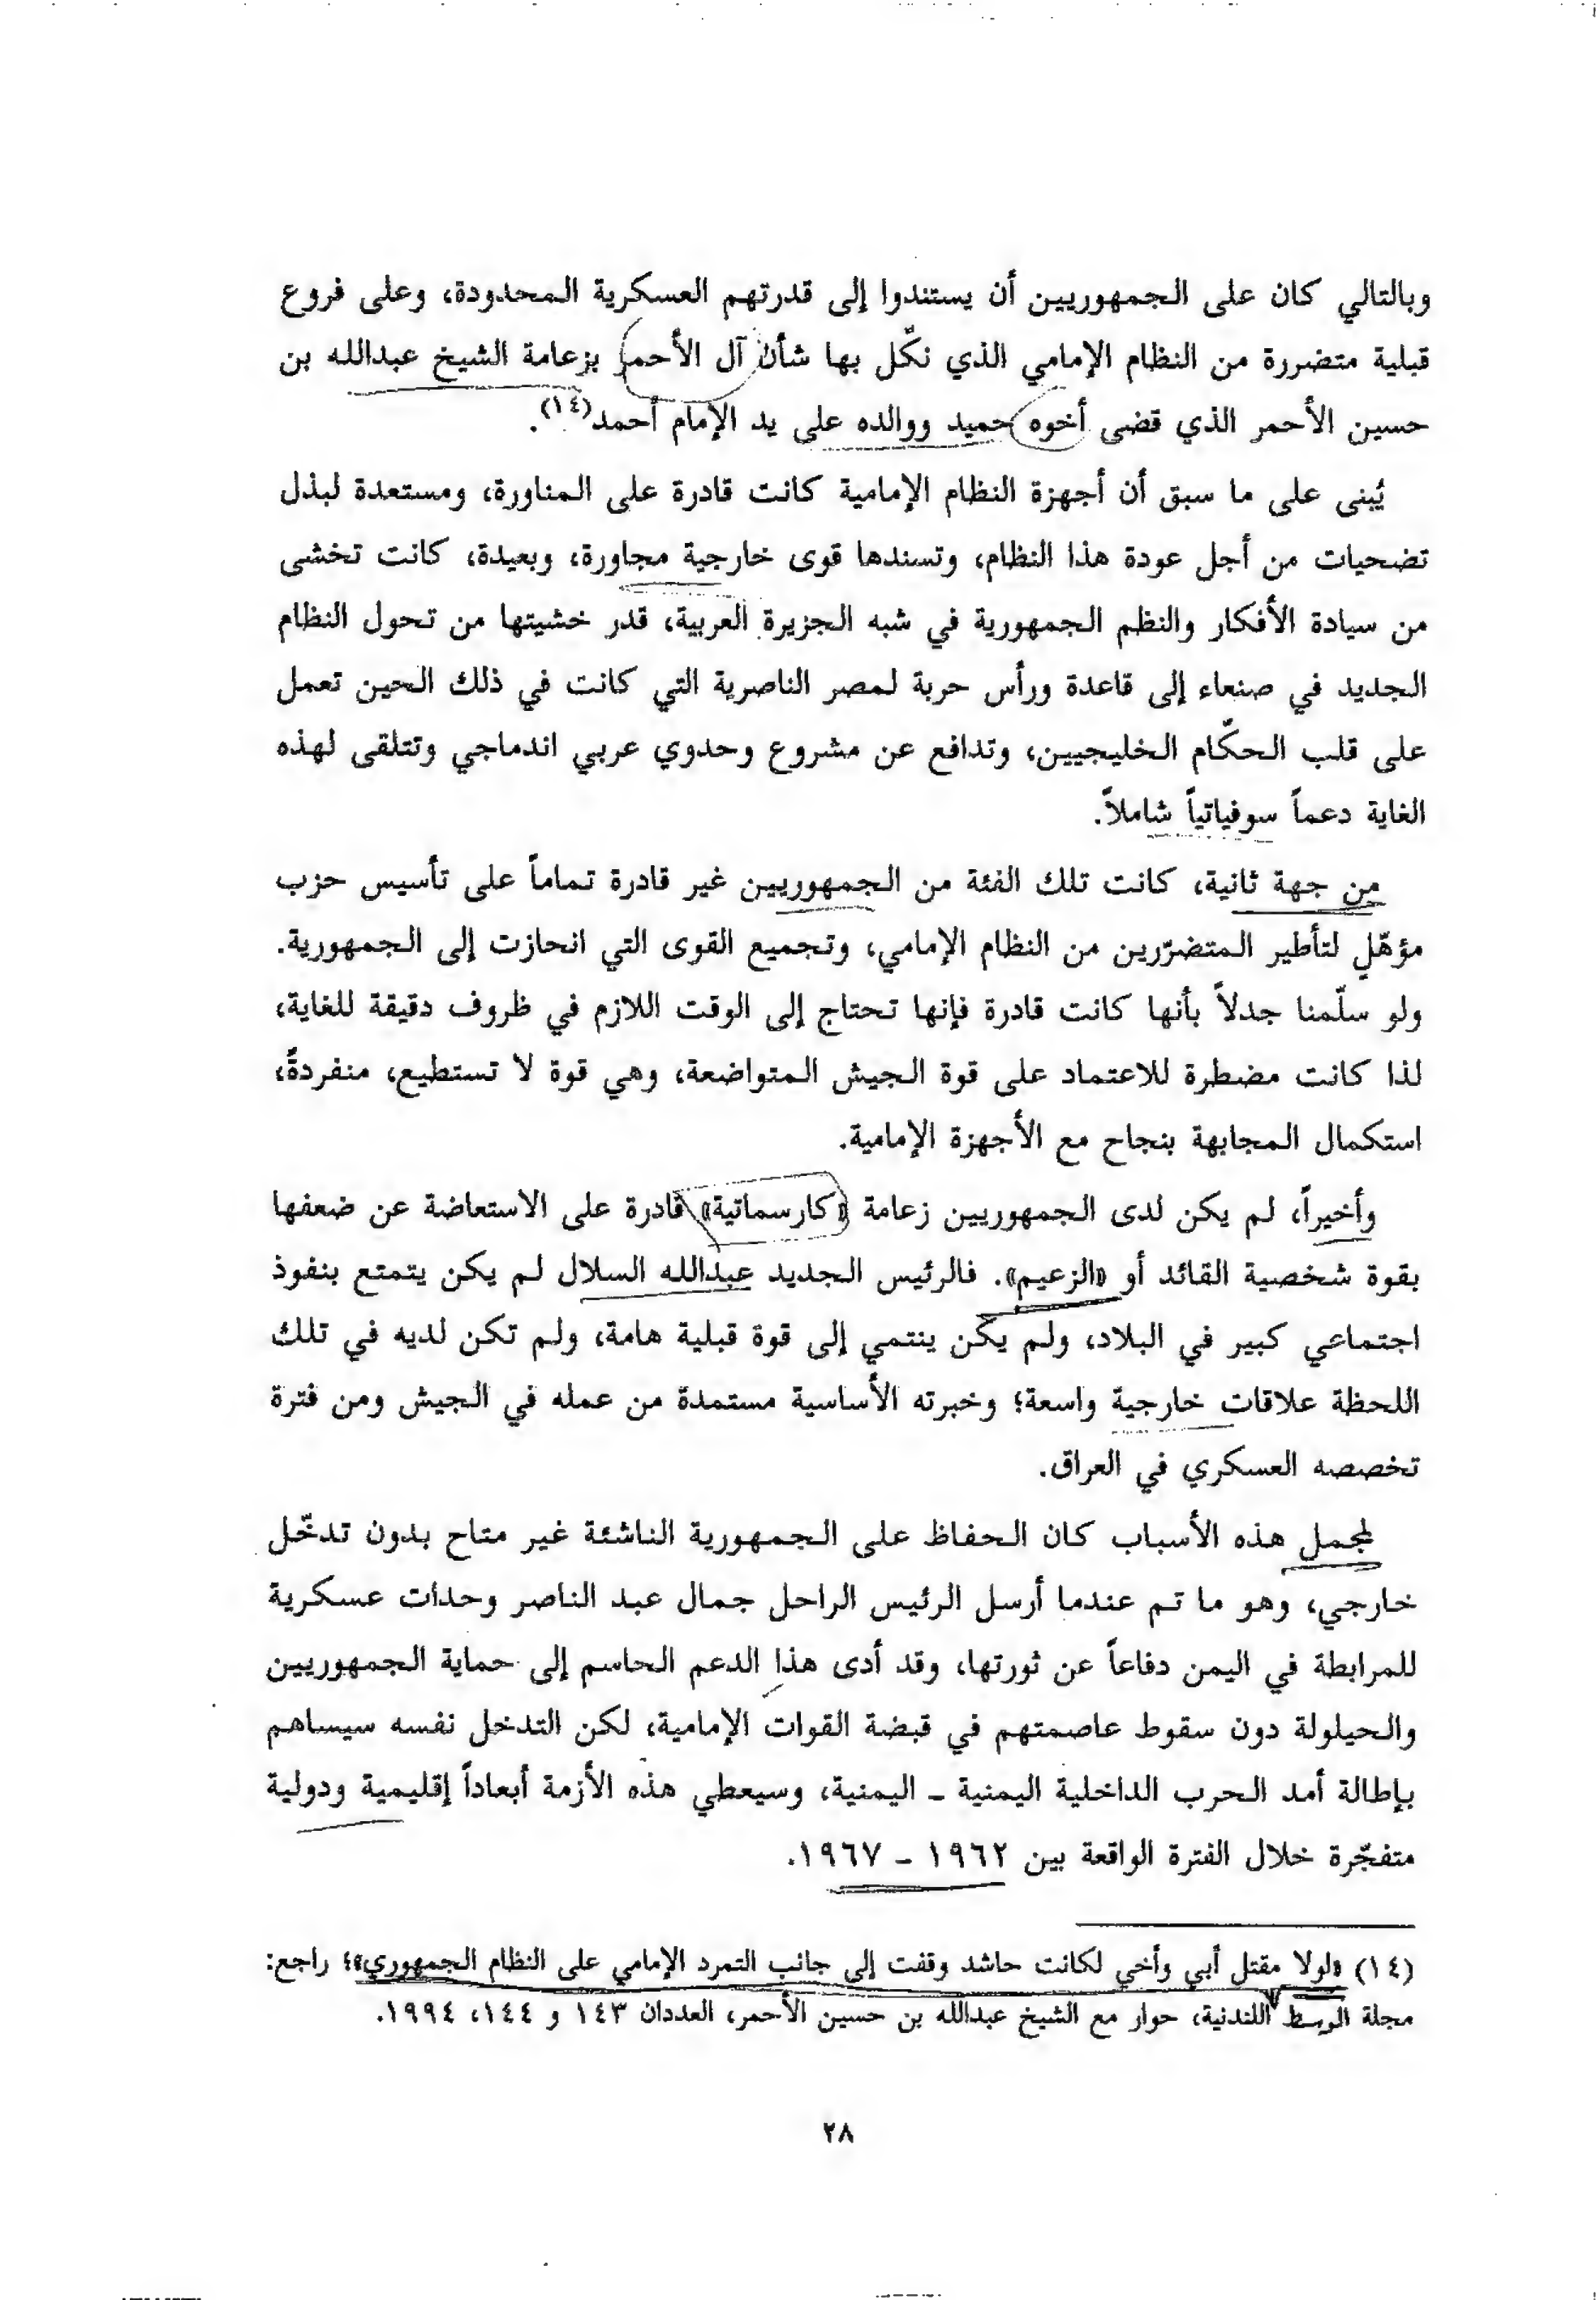 وبالتالي كان على الجمهوريين أن يستندوا إلى قدرتهم العسكرية المحدودة، وعلى فروع
قبلية متضررة من النظام الإمامي الذي نكّل بها شأن آل الأحمر بزعامة الشيخ عبدالله بن
حسين الأحمر الذي قضى أخوه حميد ووالده على يد الإمام أحمد(١٤).
يُبنى على ما سبق أن أجهزة النظام الإمامية كانت قادرة على المناورة، ومستعدة لبذل
تضحيات من أجل عودة هذا النظام، وتسندها قوى خارجية مجاورة، وبعيدة، كانت تخشى
من سيادة الأفكار والنظم الجمهورية في شبه الجزيرة العربية، قدر خشيتها من تحول النظام
الجديد في صنعاء إلى قاعدة ورأس حربة لمصر الناصرية التي كانت في ذلك الحين تعمل
على قلب الحكّام الخليجيين، وتدافع عن مشروع وحدوي عربي اندماجي وتتلقى لهذه
الغاية دعماً سوفياتياً شاملاً.
من جهة ثانية، كانت تلك الفئة من الجمهوريين غير قادرة تماماً على تأسيس حزب
مؤهّلٍ لتأطير المتضرّرين من النظام الإمامي، وتجميع القوى التي انحازت إلى الجمهورية.
ولو سلّمنا جدلاً بأنها كانت قادرة فإنها تحتاج إلى الوقت اللازم في ظروف دقيقة للغاية،
لذا كانت مضطرة للاعتماد على قوة الجيش المتواضعة، وهي قوة لا تستطيع، منفردةً،
استكمال المجابهة بنجاح مع الأجهزة الإمامية.
وأخيراً، لم يكن لدى الجمهوريين زعامة «كارسماتية» قادرة على الاستعاضة عن ضعفها
بقوة شخصية القائد أو «الزعيم». فالرئيس الجديد عبدالله السلال لم يكن يتمتع بنفوذ
اجتماعي كبير في البلاد، ولم يكن ينتمي إلى قوة قبلية هامة، ولم تكن لديه في تلك
اللحظة علاقات خارجية واسعة؛ وخبرته الأساسية مستمدة من عمله في الجيش ومن فترة
تخصصه العسكري في العراق.
لمجمل هذه الأسباب كان الحفاظ على الجمهورية الناشئة غير متاح بدون تدخّل
خارجي، وهو ما تم عندما أرسل الرئيس الراحل جمال عبد الناصر وحدات عسكرية
للمرابطة في اليمن دفاعاً عن ثورتها، وقد أدى هذا الدعم الحاسم إلى حماية الجمهوريين
والحيلولة دون سقوط عاصمتهم في قبضة القوات الإمامية، لكن التدخل نفسه سيساهم
بإطالة أمد الحرب الداخلية اليمنية ـ اليمنية، وسيعطي هذه الأزمة أبعاداً إقليمية ودولية
متفجّرة خلال الفترة الواقعة بين ١٩٦٢ ـ ١٩٦٧.
(١٤) «لولا مقتل أبي وأخي لكانت حاشد وقفت إلى جانب التمرد الإمامي على النظام الجمهوري»؛ راجع:
مجلة الوسط اللندنية، حوار مع الشيخ عبدالله بن حسين الأحمر، العددان ١٤٣ و ١٤٤، ١٩٩٤.
٢٨